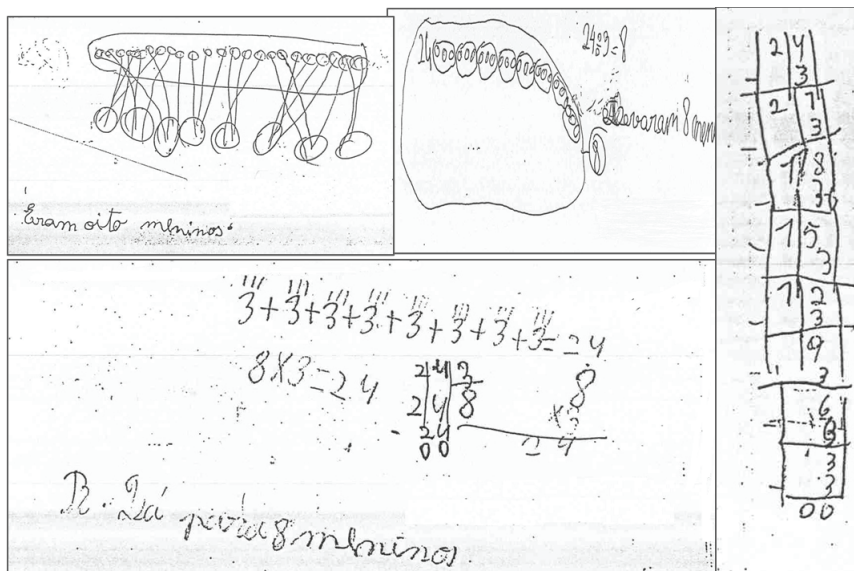 Eram oito meninos.
24
24÷3=8
levaram 8 meni
8
3+3+3+3+3+3+3+3=24
8X3=24
24 3
24 8
- 24
00
8
X3
24
R. Dá para 8 meninos
24
- 3
21
- 3
18
- 3
15
- 3
12
- 3
9
- 3
6
- 3
3
- 3
00